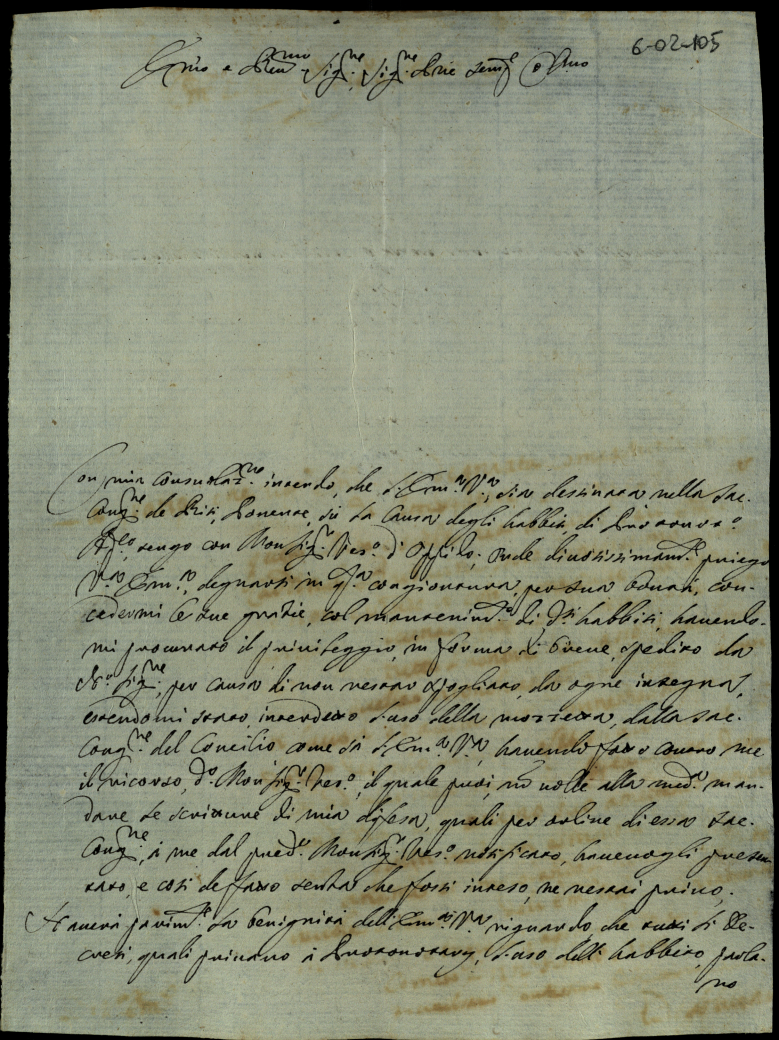 6-02-105
Emo e Revmo Sigre, Sigre e Pne semp.e Colmo
Con mia consolaz.ne intendo, che l'Em.a V.a, sia destinata nella Sac.
Cong.ne de Riti, Ponente, sù la Causa degli habbiti di Protonot.o
Ap.co, tengo con Monsig.r Vesc.o d'Oppido; onde divotissimam.te priego
V.a Em.a, degnarsi in q.ta congiontura, per sua bontà, con-
cedermi le sue grazie, col mantenim.to di d.ti habbiti, havendo-
mi procurato il privileggio, in forma di breve, spedito da
N.o Sig.re, per causa di non restar spogliato, da ogni insegna,
essendomi stato, interdetto l'uso della mozzetta, dalla Sac.
Cong.ne del Concilio come sà l'Em.a V.a, havendo fatto contro me
il ricorso, d.o Monsig.r Vesc.o, il quale puoi, non volle alla med.a man-
dare le scritture di mia difesa, quali per ordine di essa Sac.
Cong.ne, à me dal pred.o Monsig.r Vesc.o notificato, havevogli presen-
tato e così de facto senza che fossi inteso, ne restai privo.
Haverà parim.te la benignità dell'Em.a V.a riguardo, che tutti li De-
creti, quali privano i Protonotarij, l'uso dell' habbito, parla-
no